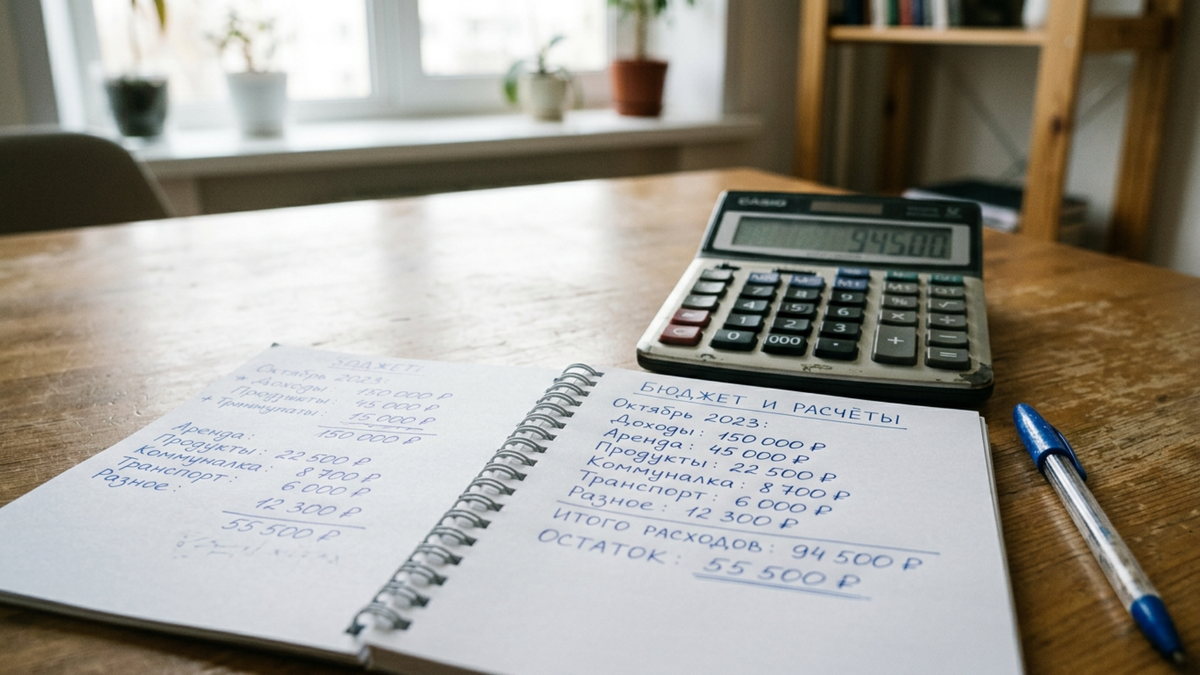 БЮДЖЕТ:
Октябрь 2023:
* Доходы 150 000 ₽
Продукты: 45 000 ₽
15 000 ₽
150 000 ₽
Аренда:
Продукты: 22 500 ₽
Коммуналка: 8 700 ₽
Транспорт: 6 000 ₽
Разное: 12 300 ₽
55 500 ₽
БЮДЖЕТ И РАСЧЁТЫ
Октябрь 2023:
Доходы: 150 000 ₽
Аренда: 45 000 ₽
Продукты: 22 500 ₽
Коммуналка: 8 700 ₽
Транспорт: 6 000 ₽
Разное: 12 300 ₽
ИТОГО РАСХОДОВ: 94 500 ₽
ОСТАТОК: 55 500 ₽
CASIO
94500
7 8 9 % √
4 5 6 × ÷
1 2 3 + −
0 000 . =
C